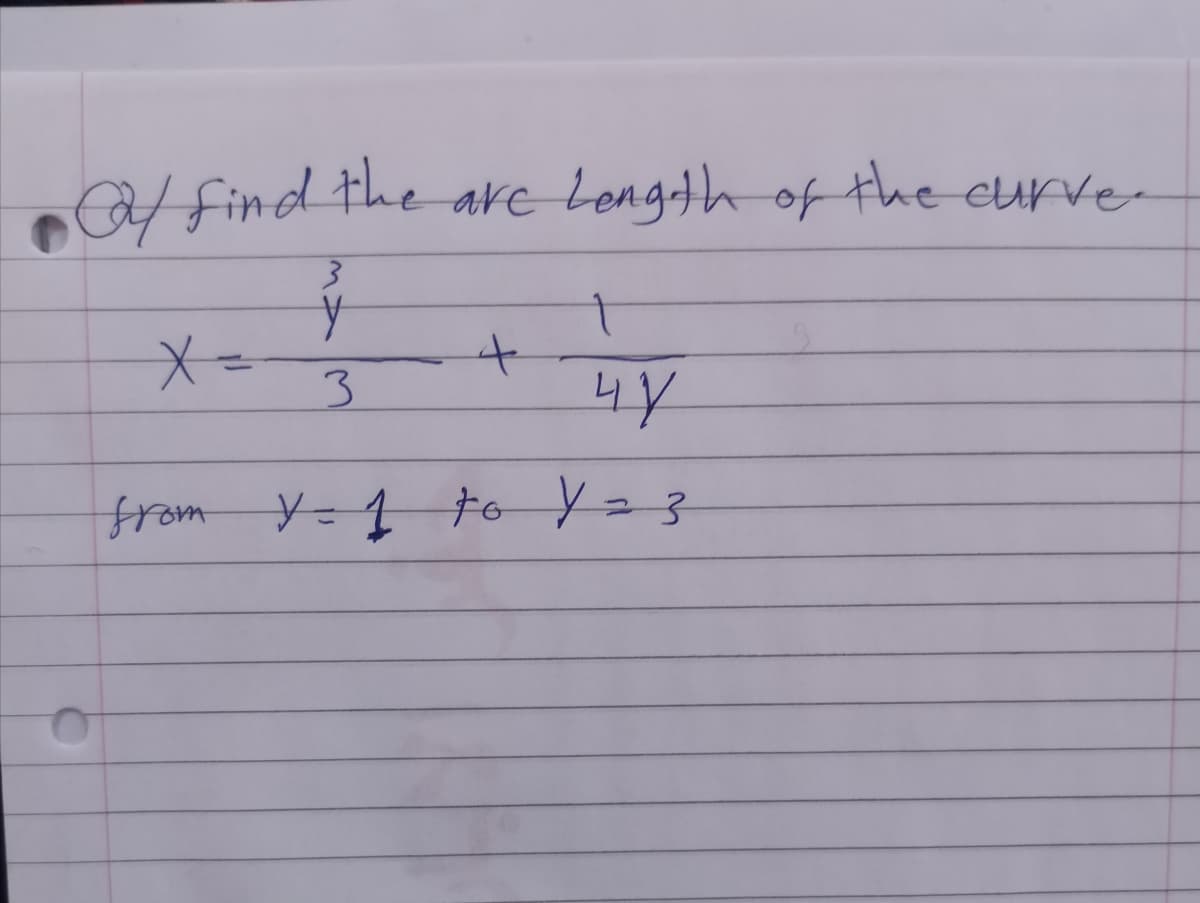 Q/ find the arc Length of the curve.
X = y³/3 + 1/4y
from y = 1 to y = 3